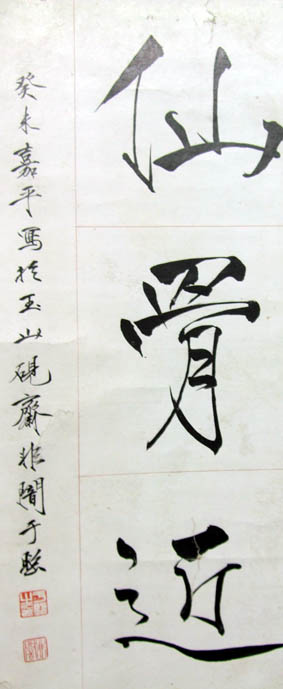 仙骨近
癸未嘉平寫於玉山硯齋非闇于照